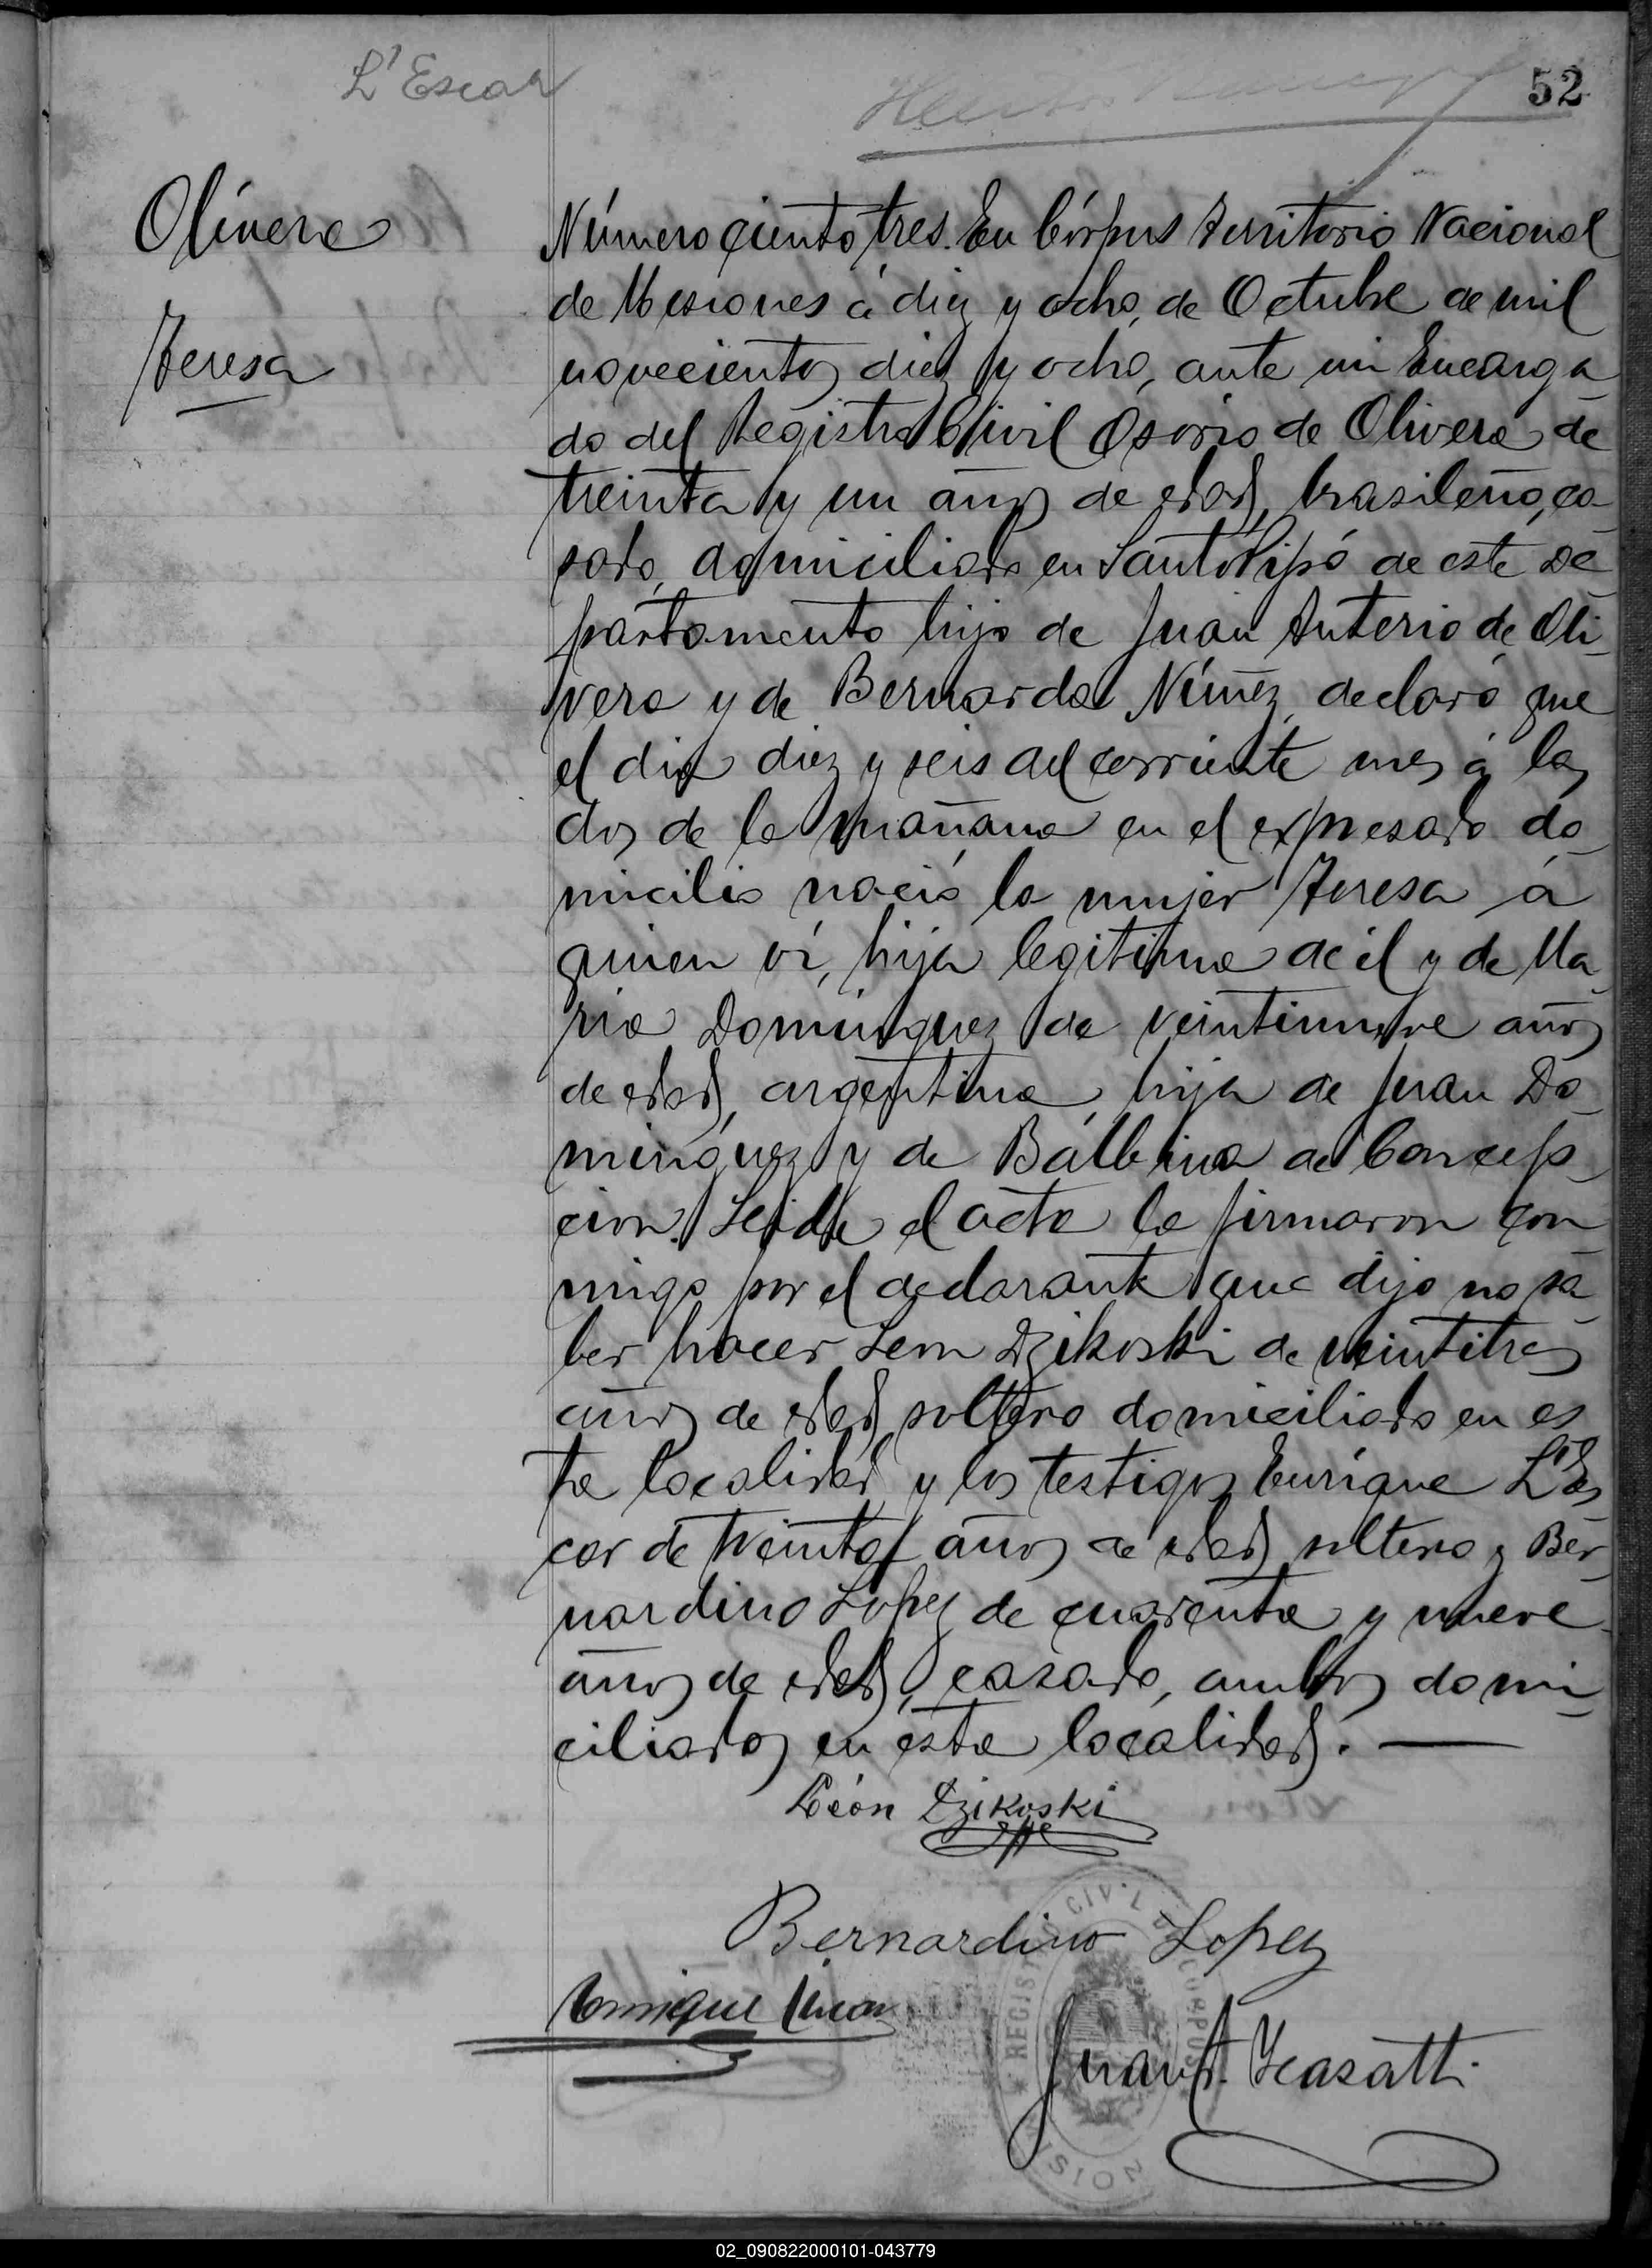 L'Escar
52
Olivera
Teresa
Número ciento tres. En Córpus Territorio Nacional
de Misiones á diez y ocho, de Octubre de mil
novecientos diez y ocho, ante mi Encarga
do del Registro Civil Osorio de Olivera de
treinta y un años de edad, brasileño, ca-
sado, domiciliado en Santo Pipó de este De
partamento hijo de Juan Anterio de Oli-
vera y de Bernarda Núñez, declaró que
el dia diez y seis del corriente mes á las
dos de la mañana en el expresado do-
micilio nació la mujer Teresa á
quien ví, hija legitima de él y de Ma-
ria Dominguez de veintinueve años
de edad, argentina, hija de Juan Do-
minguez y de Balbina de Concep-
cion. Leida el acta la firmaron con-
migo por el declarante que dijo no sa-
ber hacer Leon Dzikoski de veintitres
años de edad, soltero domiciliado en es-
ta localidad y los testigos Enrique L'Es-
car de treinta años de edad, soltero y Ber-
nardino Lopez de cuarenta y nueve
años de edad, casado, ambos domi-
ciliados en esta localidad. —
Léon Dzikoski
Bernardino Lopez
Enrique
Juan
REGISTRO CIVIL CORPUS
02_090822000101-043779